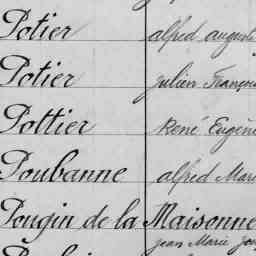 Potier alfred auguste
Potier julien Franço
Pottier René Eugène
Poubanne alfred Mari
Pougin de la Maisonne
jean Marie